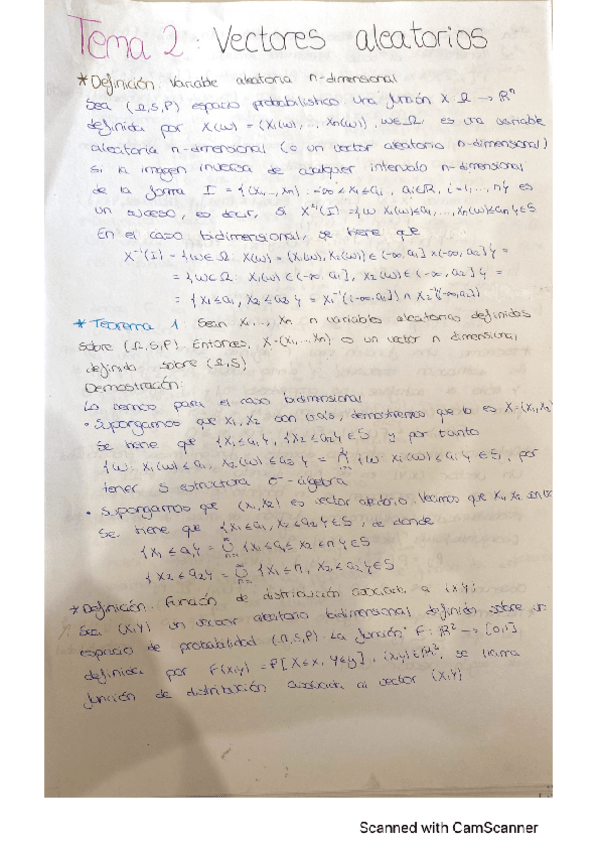 Tema 2: Vectores aleatorios
* Definición. Variable aleatoria n-dimensional
Sea (Ω,S,P) espacio probabilístico una función X: Ω → ℝⁿ
definida por X(ω) = (X₁(ω),..., Xn(ω)), ω∈Ω, es una variable
aleatoria n-dimensional (o un vector aleatorio n-dimensional)
si la imagen inversa de cualquier intervalo n-dimensional
de la forma I = {(x₁,...,xn) : -∞<xᵢ≤aᵢ, aᵢ∈ℝ, i=1,...,n} es
un suceso, es decir, si X⁻¹(I) = {ω: X₁(ω)≤a₁,...,Xn(ω)≤an}∈S
En el caso bidimensional, se tiene que
X⁻¹(I) = {ω∈Ω: X(ω) = (X₁(ω), X₂(ω)) ∈ (-∞, a₁] x (-∞, a₂]} =
= {ω∈Ω: X₁(ω) ∈ (-∞, a₁], X₂(ω) ∈ (-∞, a₂]} =
= {X₁≤a₁, X₂≤a₂} = X₁⁻¹((-∞,a₁]) ∩ X₂⁻¹((-∞,a₂])
* Teorema 1: Sean X₁,..., Xn n variables aleatorias definidas
sobre (Ω,S,P). Entonces, X=(X₁,...Xn) es un vector n dimensional,
definido sobre (Ω,S)
Demostración:
Lo vemos para el caso bidimensional
• Supongamos que X₁, X₂ son v.a's, demostremos que lo es X=(X₁,X₂)
Se tiene que {X₁≤a₁}, {X₂≤a₂}∈S y por tanto
{ω: X₁(ω)≤a₁, X₂(ω)≤a₂} = ∩ {ω: Xᵢ(ω)≤aᵢ}∈S, por
tener S estructura σ-álgebra
• Supongamos que (X₁,X₂) es vector aleatorio. Veamos que X₁, X₂ son
Se tiene que {X₁≤a₁, X₂≤a₂}∈S, de donde
{X₁≤a₁} = ∪ {X₁≤a₁, X₂≤n}∈S
{X₂≤a₂} = ∪ {X₁≤n, X₂≤a₂}∈S
* Definición. Función de distribución asociada a (X,Y)
Sea (X,Y) un vector aleatorio bidimensional definido sobre un
espacio de probabilidad (Ω,S,P). La función F: ℝ² → [0,1]
definida por F(x,y) = P[X≤x, Y≤y], (x,y)∈ℝ², se llama
función de distribución asociada al vector (X,Y)
Scanned with CamScanner